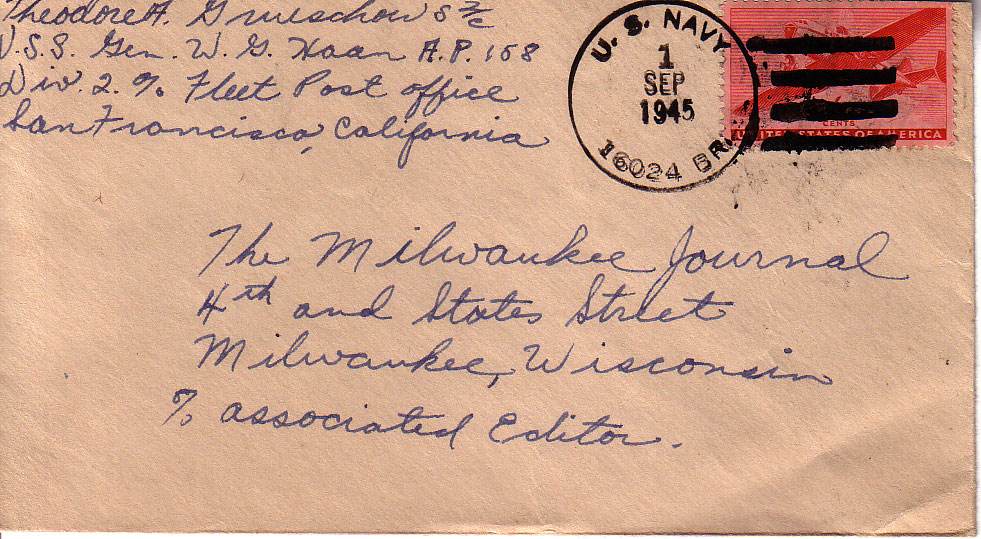 Theodore A. Grueschow S 2/c
U.S.S. Gen. W. G. Haan A.P. 158
Div. 2. % Fleet Post office
San Francisco, California
U. S. NAVY
1
SEP
1945
16024 BR.
CENTS
UNITED STATES OF AMERICA
The Milwaukee Journal
4th and States Street
Milwaukee, Wisconsin
% associated Editor.